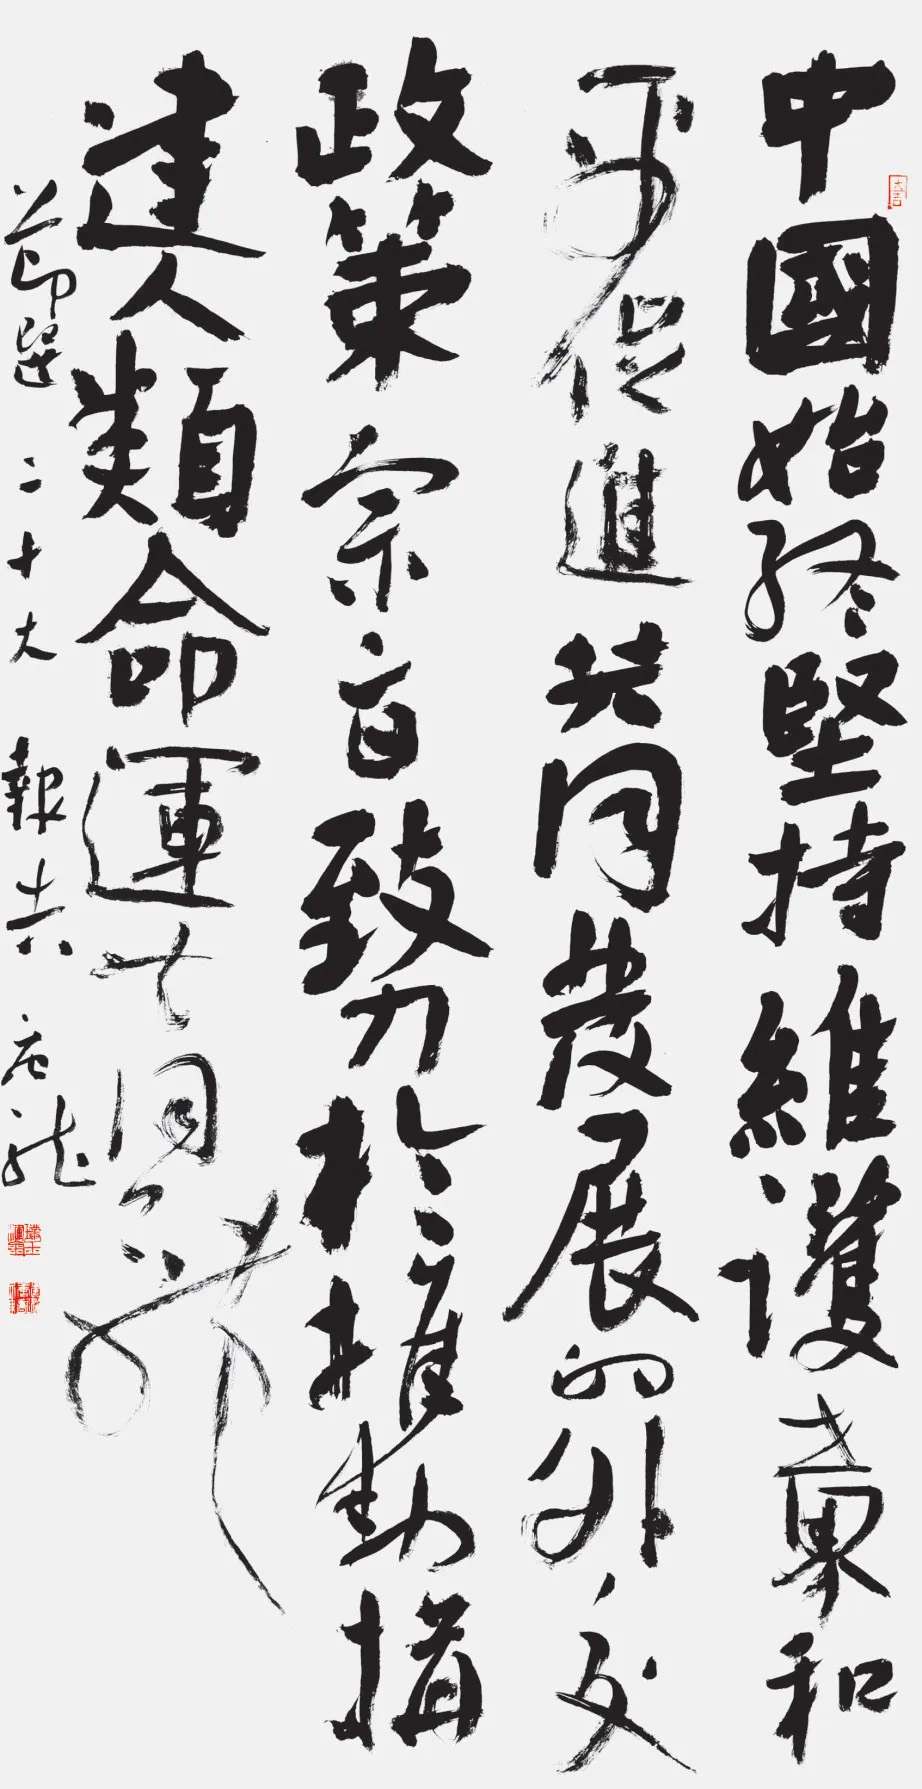 中國始終堅持維護世界和
平促進共同發展的外交
政策宗旨致力於推動搆
建人類命運共同體
節選二十大報告